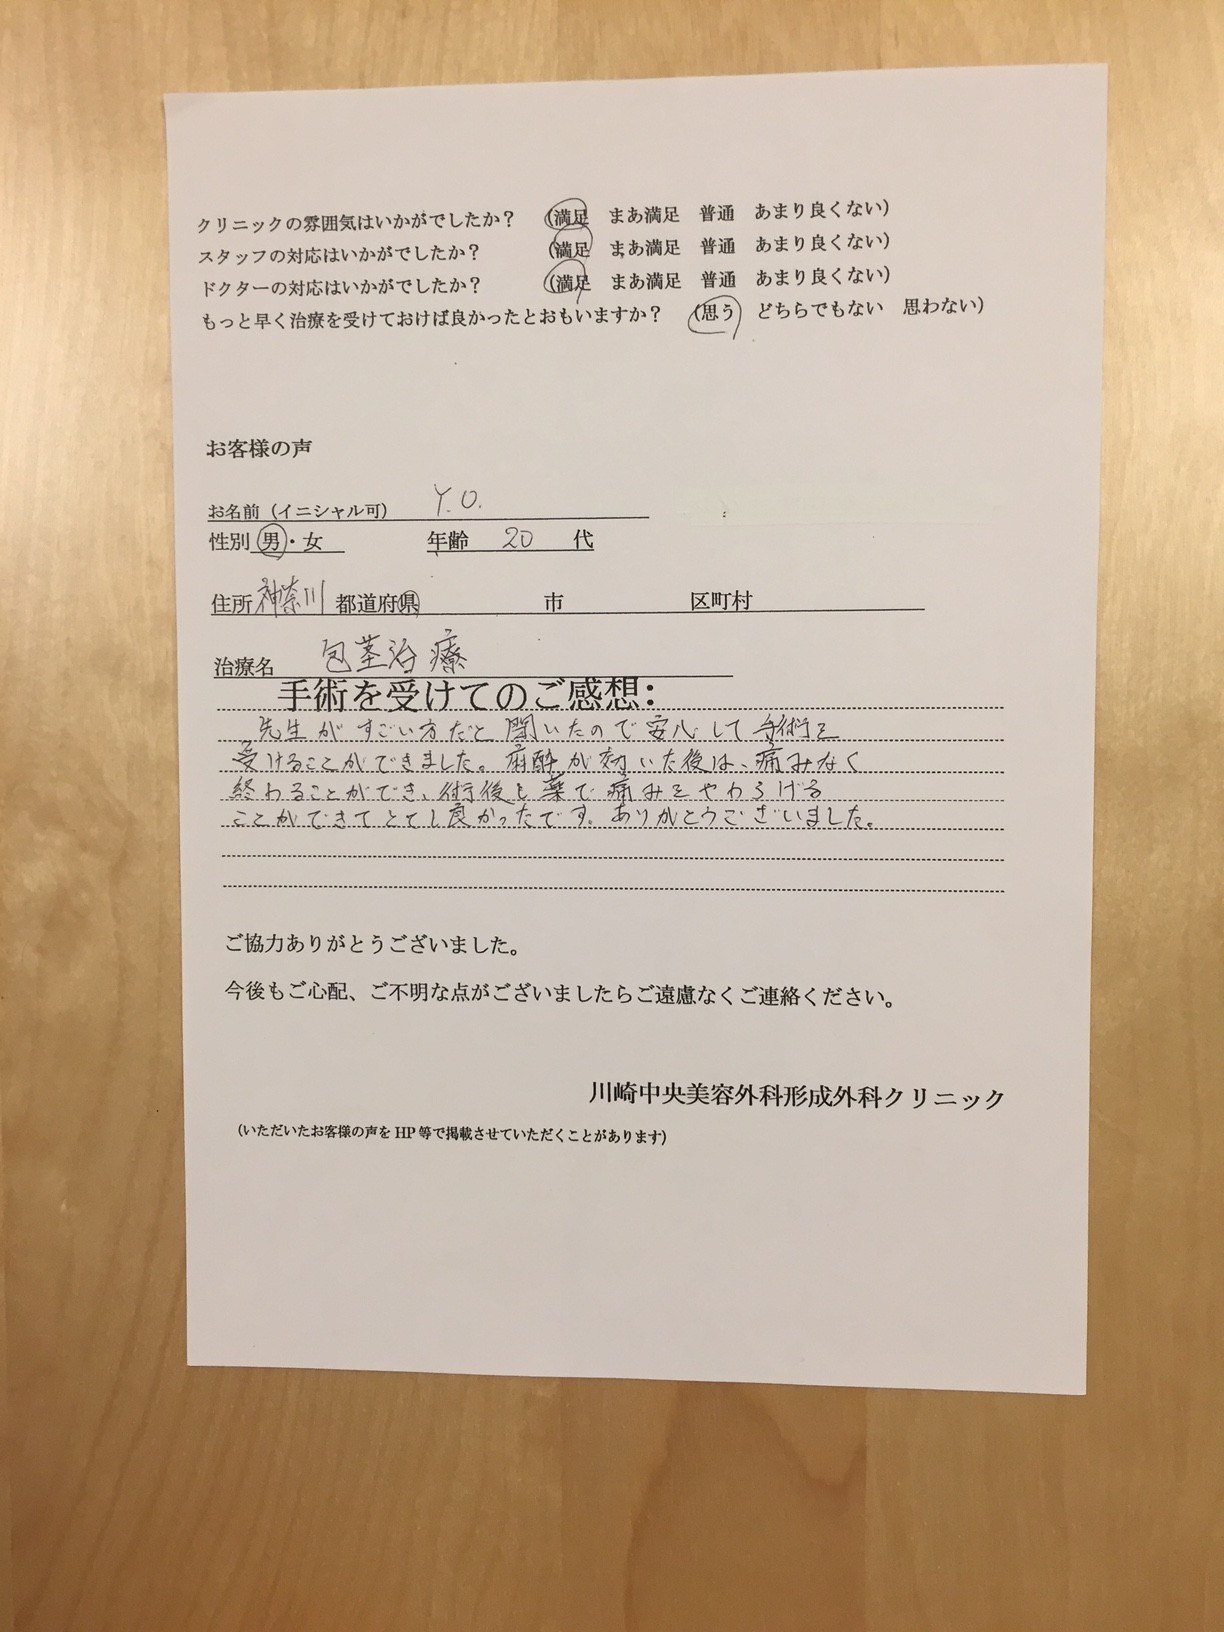 クリニックの雰囲気はいかがでしたか？ （満足 まあ満足 普通 あまり良くない）
スタッフの対応はいかがでしたか？ （満足 まあ満足 普通 あまり良くない）
ドクターの対応はいかがでしたか？ （満足 まあ満足 普通 あまり良くない）
もっと早く治療を受けておけば良かったとおもいますか？ （思う どちらでもない 思わない）
お客様の声
お名前（イニシャル可） Y.O.
性別 男・女 年齢 20 代
住所 神奈川 都道府県 市 区町村
治療名 包茎治療
手術を受けてのご感想：
先生がすごい方だと聞いたので安心して手術を
受けることができました。麻酔が効いた後は、痛みなく
終わることができ、術後も薬で痛みをやわらげる
ことができてとても良かったです。ありがとうございました。
ご協力ありがとうございました。
今後もご心配、ご不明な点がございましたらご遠慮なくご連絡ください。
川崎中央美容外科形成外科クリニック
（いただいたお客様の声を HP 等で掲載させていただくことがあります）